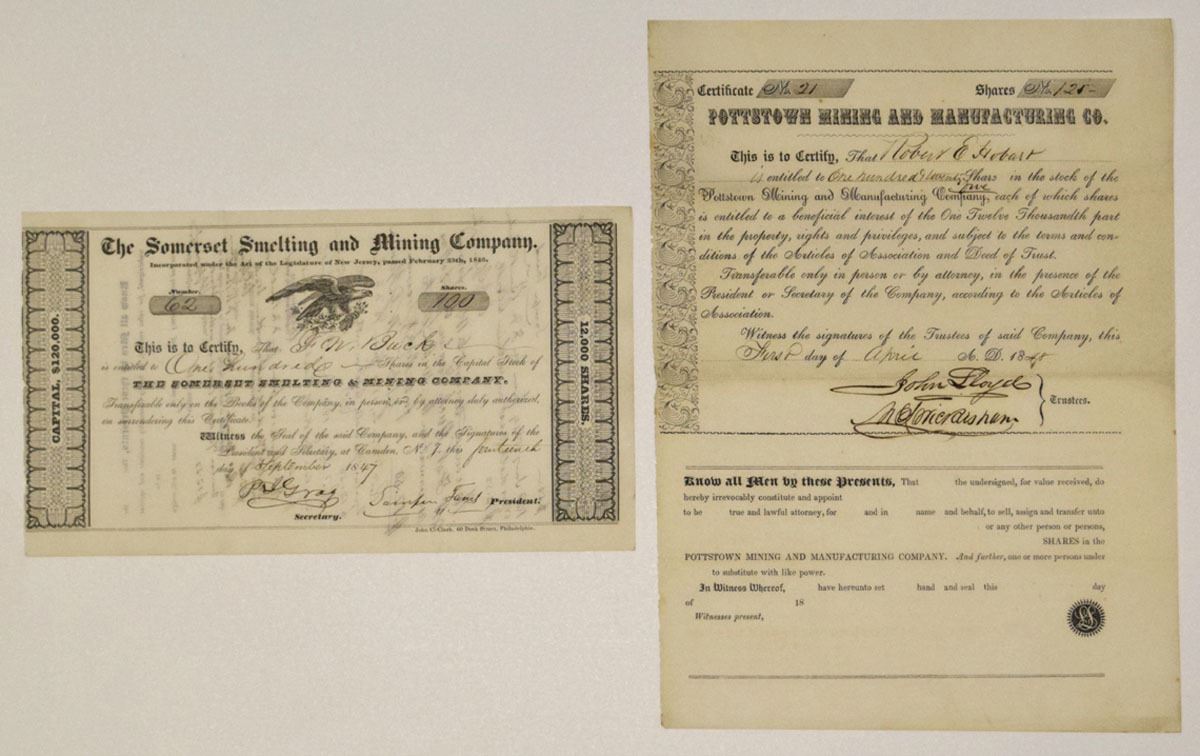 The Somerset Smelting and Mining Company.
Incorporated under the Act of the Legislature of New Jersey, passed February 25th, 1846.
Number.
62
Shares.
100
CAPITAL, $120,000.
12,000 SHARES.
This is to Certify, That F. W. Buck
is entitled to One hundred Shares in the Capital Stock of
THE SOMERSET SMELTING & MINING COMPANY.
Transferable only on the Books of the Company, in person, or by attorney duly authorized,
on surrendering this Certificate.
Witness the Seal of the said Company, and the Signatures of the
President and Secretary, at Camden, N. J. this fourteenth
day of September 1847
Gray
Secretary.
President.
John C. Clark, 60 Dock Street, Philadelphia.
Certificate No. 21 Shares No. 125
POTTSTOWN MINING AND MANUFACTURING CO.
This is to Certify, That Robert E Hobart
is entitled to One hundred & twenty Shares in the stock of the
five
Pottstown Mining and Manufacturing Company, each of which shares
is entitled to a beneficial interest of the One Twelve Thousandth part
in the property, rights and privileges, and subject to the terms and con-
ditions of the Articles of Association and Deed of Trust.
Transferable only in person or by attorney, in the presence of the
President or Secretary of the Company, according to the Articles of
Association.
Witness the signatures of the Trustees of said Company, this
First day of April A. D. 1848
John Lloyd
Trustees.
Know all Men by these Presents, That the undersigned, for value received, do
hereby irrevocably constitute and appoint
to be true and lawful attorney, for and in name and behalf, to sell, assign and transfer unto
or any other person or persons,
SHARES in the
POTTSTOWN MINING AND MANUFACTURING COMPANY. And further, one or more persons under
to substitute with like power.
In Witness Whereof, have hereunto set hand and seal this day
of 18
Witnesses present,
LS